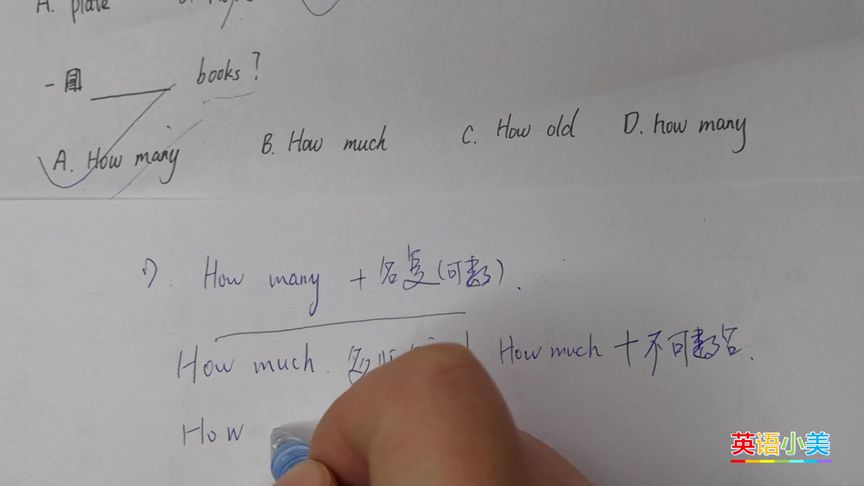 A. plate
-目 ______ books?
A. How many B. How much C. How old D. how many
1). How many + 名复(可数).
How much. How much + 不可数名.
How
英语小美